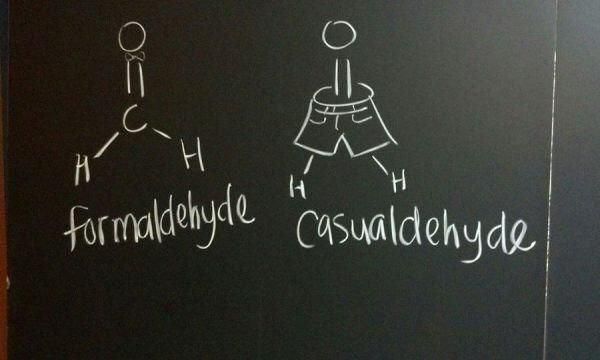 O O
C
H H
H H
formaldehyde casualdehyde